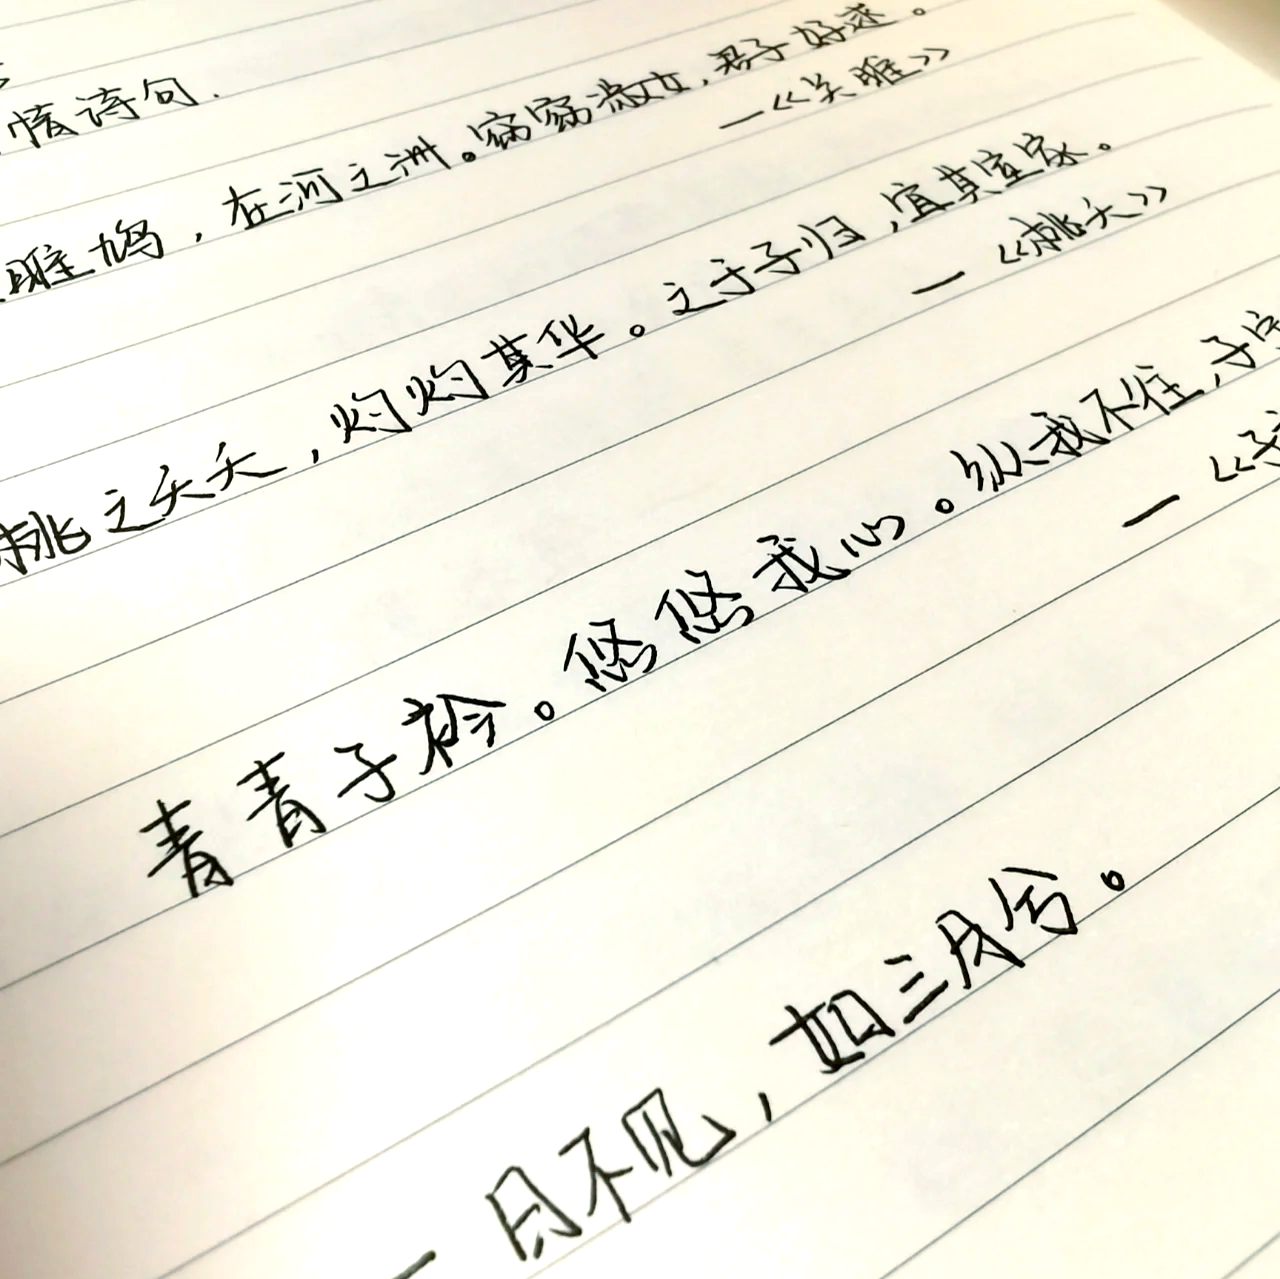 情诗句.
雎鸠，在河之洲。窈窕淑女，君子好逑。
—《关雎》
桃之夭夭，灼灼其华。之于子归，宜其室家。
—《桃夭》
青青子衿。悠悠我心。纵我不往，子
—《子
一日不见，如三月兮。